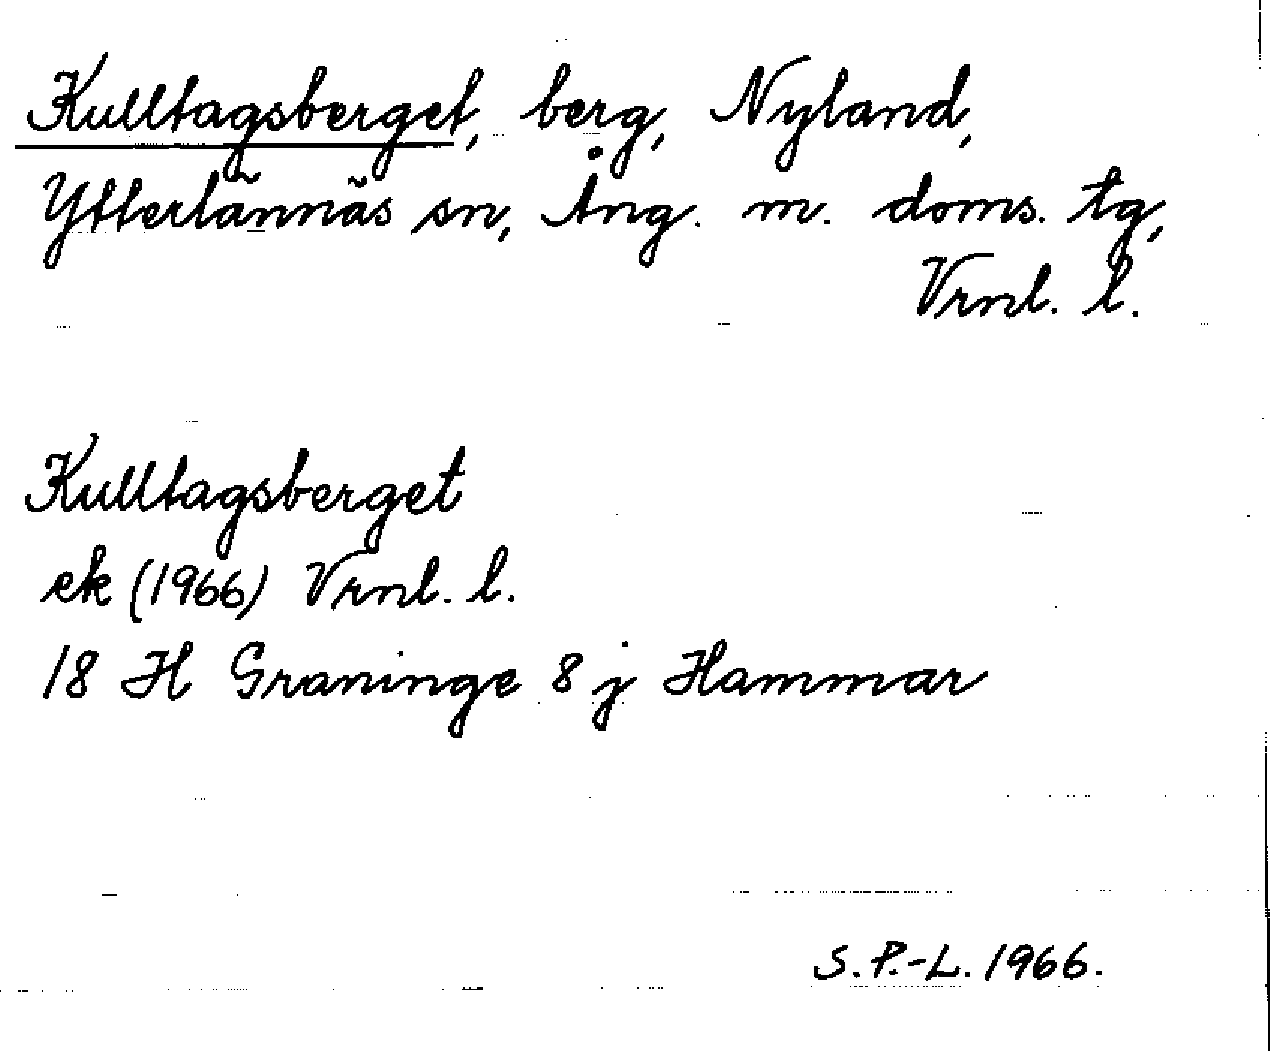 Kulltagsberget, berg, Nyland,
Ytterlännäs sn, Ång. m. doms. tg,
Vrnl. l.
Kulltagsberget
ek (1966) Vrnl. l.
18 H Graninge 8 j Hammar
S. P.-L. 1966.